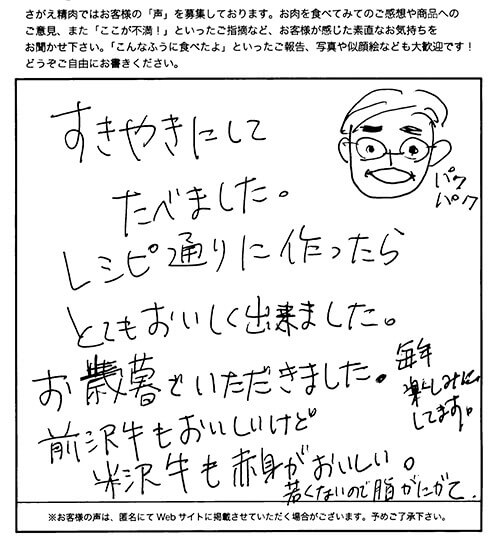 さがえ精肉ではお客様の「声」を募集しております。お肉を食べてみてのご感想や商品への
ご意見、また「ここが不満！」といったご指摘など、お客様が感じた素直なお気持ちを
お聞かせ下さい。「こんなふうに食べたよ」といったご報告、写真や似顔絵なども大歓迎です！
どうぞご自由にお書きください。
すきやきにして
たべました。
パク
パク
レシピ通りに作ったら
とてもおいしく出来ました。
お歳暮でいただきました。
毎年
楽しみに
してます。
前沢牛もおいしいけど
米沢牛も赤身がおいしい。
若くないので脂がにがて.
※お客様の声は、匿名にてWebサイトに掲載させていただく場合がございます。予めご了承下さい。